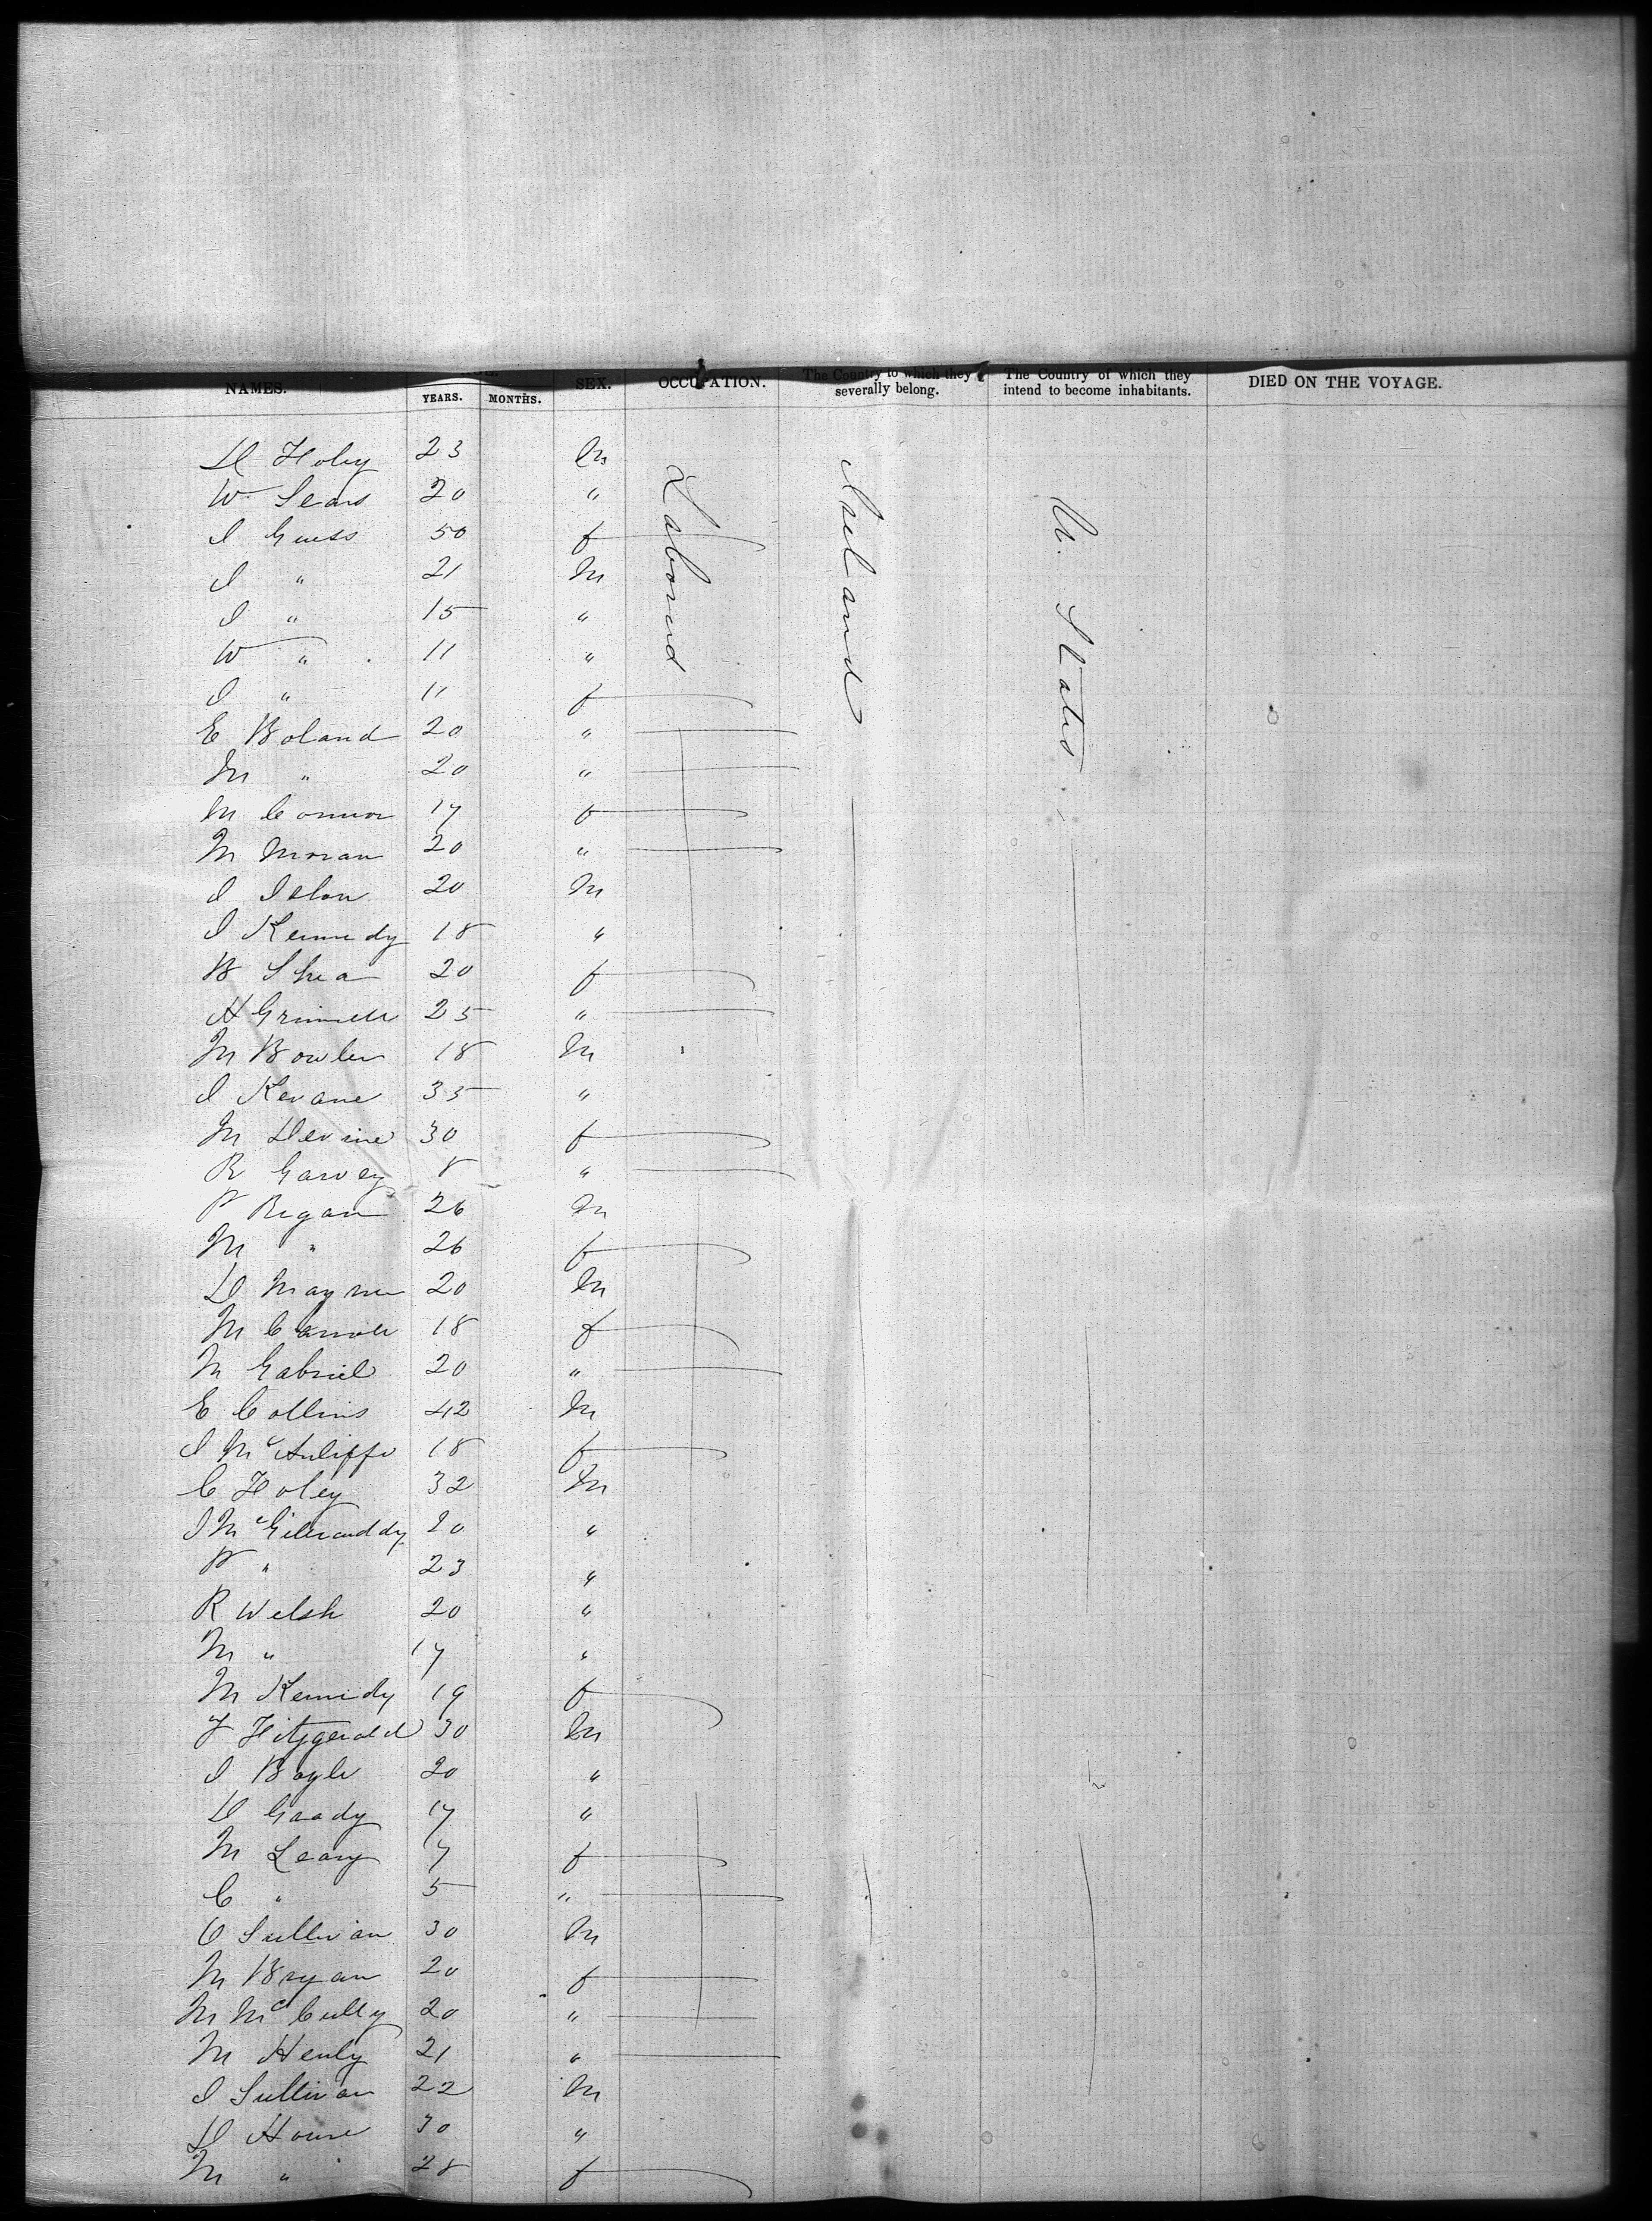 NAMES. YEARS. MONTHS. SEX. OCCUPATION. The Country to which they severally belong. The Country of which they intend to become inhabitants. DIED ON THE VOYAGE.
Labored
Ireland
U. States
D Foley 23 M
W Sears 20 "
J Guess 50 f
J " 21 M
J " 15 "
W " 11 "
J " 11 f
E Boland 20 "
M " 20 "
M Connor 17 f
M Moran 20 "
J 20 M
J Kennedy 18 "
B Shea 20 f
H Grinnell 25 "
M Bowler 18 M
J Kevane 35 "
M Devine 30 f
R Garvey 8 "
P Regan 26 M
M " 26 f
D 20 M
M Carroll 18 f
M Gabriel 20 "
E Collins 42 M
J McAuliffe 18 f
C Foley 32 M
J 20 "
P " 23 "
R Welsh 20 "
M " 17 "
M Kennedy 19 f
F Fitzgerald 30 M
J Boyle 20 "
D Grady 17 "
M Leary 7 f
C " 5 "
O Sullivan 30 M
M Bryan 20 f
M McCully 20 "
M Henly 21 "
J Sullivan 22 M
D House 30 "
M " 28 f